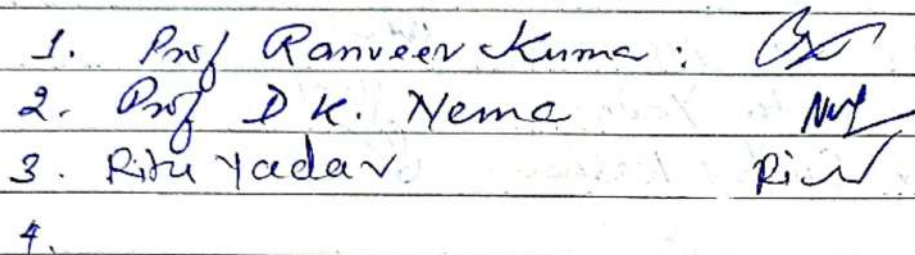 1. Prof Ranveer Kumar :
2. Prof D K. Nema
3. Ritu Yadav
4.